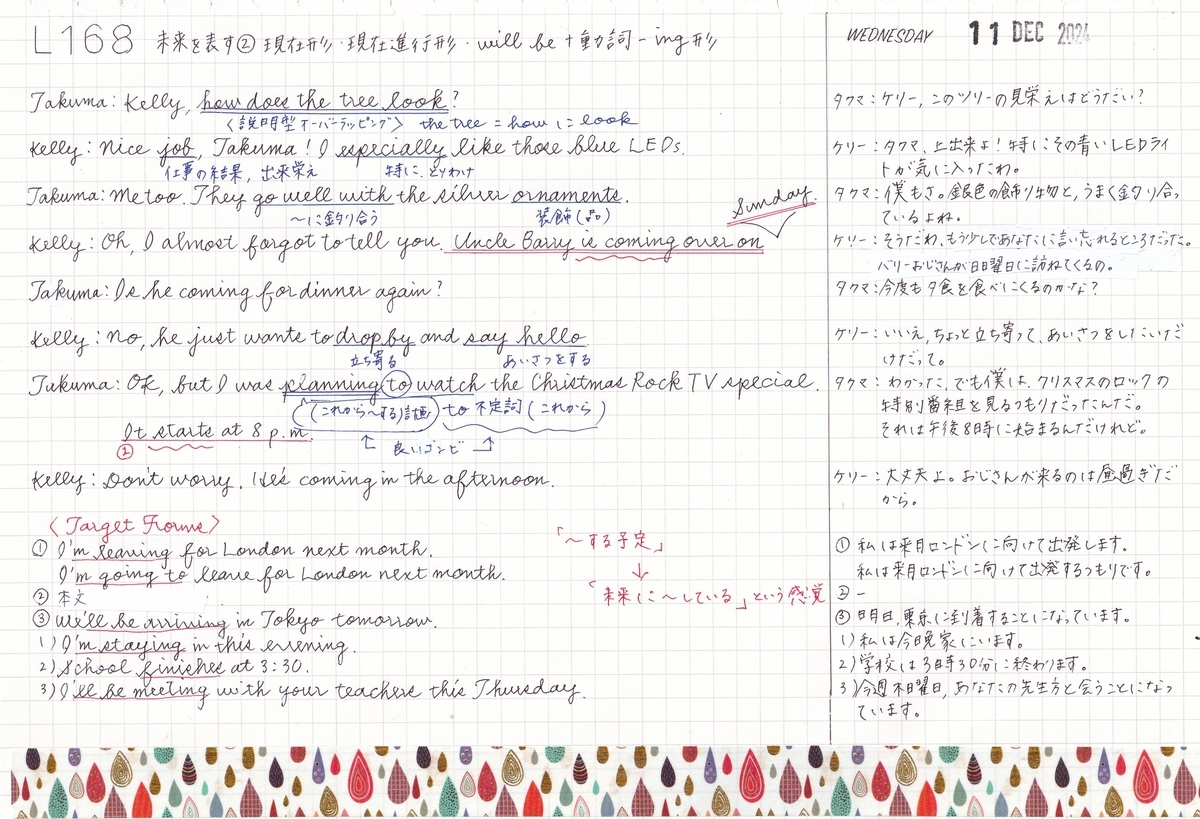 L168 未来を表す② 現在形・現在進行形・will be + 動詞-ing形
WEDNESDAY 11 DEC 2024
Takuma: Kelly, how does the tree look?
〈説明型オーバーラッピング〉 the tree = how に look
Kelly: Nice job, Takuma! I especially like those blue LEDs.
仕事の結果, 出来栄え 特に, とりわけ
Takuma: Me too. They go well with the silver ornaments.
〜に釣り合う 装飾(品)
Sunday.
Kelly: Oh, I almost forgot to tell you. Uncle Barry is coming over on
Takuma: Is he coming for dinner again?
Kelly: No, he just wants to drop by and say hello.
立ち寄る あいさつをする
Takuma: OK, but I was planning to watch the Christmas Rock TV special.
(これから〜する)計画 to 不定詞(これから)
It starts at 8 p.m.
② 良いコンビ
Kelly: Don't worry. He's coming in the afternoon.
〈Target Forms〉
① I'm leaving for London next month.
I'm going to leave for London next month.
② 本文
③ We'll be arriving in Tokyo tomorrow.
1) I'm staying in this evening.
2) School finishes at 3:30.
3) I'll be meeting with your teachers this Thursday.
「〜する予定」
↓
「未来に〜している」という感覚
タクマ：ケリー, このツリーの見栄えはどうだい？
ケリー：タクマ, 上出来よ！特にその青いLEDライ
トが気に入ったわ。
タクマ：僕もさ。銀色の飾り物と, うまく釣り合っ
ているよね。
ケリー：そうだわ, もう少しであなたに言い忘れるところだった。
バリーおじさんが日曜日に訪ねてくるの。
タクマ：今度も夕食を食べにくるのかな？
ケリー：いいえ, ちょっと立ち寄って, あいさつをしたいだ
けだって。
タクマ：わかった, でも僕は, クリスマスのロックの
特別番組を見るつもりだったんだ。
それは午後8時に始まるんだけれど。
ケリー：大丈夫よ。おじさんが来るのは昼過ぎだ
から。
① 私は来月ロンドンに向けて出発します。
私は来月ロンドンに向けて出発するつもりです。
② −
③ 明日, 東京に到着することになっています。
1) 私は今晩家にいます。
2) 学校は3時30分に終わります。
3) 今週木曜日, あなたの先生方と会うことになっ
ています。